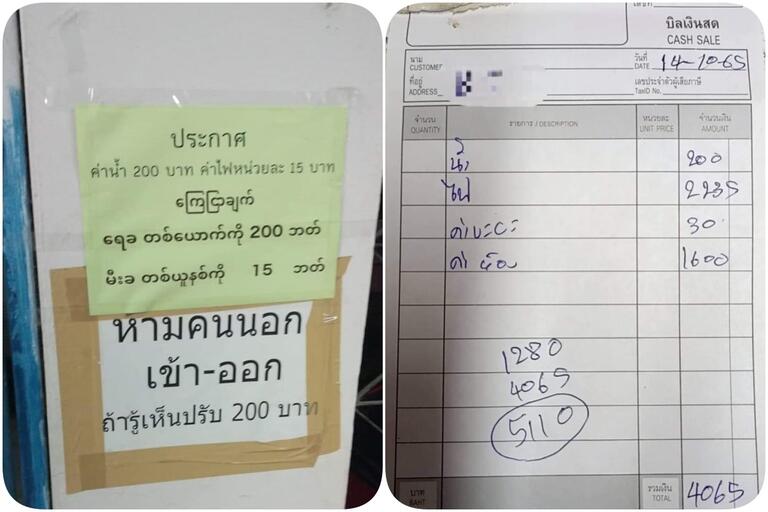 ประกาศ
ค่าน้ำ 200 บาท ค่าไฟหน่วยละ 15 บาท
ကြေငြာချက်
ရေခ တစ်ယောက်ကို 200 ဘတ်
မီးခ တစ်ယူနစ်ကို 15 ဘတ်
ห้ามคนนอก
เข้า-ออก
ถ้ารู้เห็นปรับ 200 บาท
บิลเงินสด
CASH SALE
นาม
CUSTOMER
วันที่
DATE 14-10-65
ที่อยู่
ADDRESS
เลขประจำตัวผู้เสียภาษี
TaxID No.
จำนวน
QUANTITY
รายการ / DESCRIPTION
หน่วยละ
UNIT PRICE
จำนวนเงิน
AMOUNT
น้ำ 200
ไฟ 2235
ค่าขยะ 30
ค่าห้อง 1600
1280
4065
5110
บาท
BAHT
รวมเงิน
TOTAL 4065